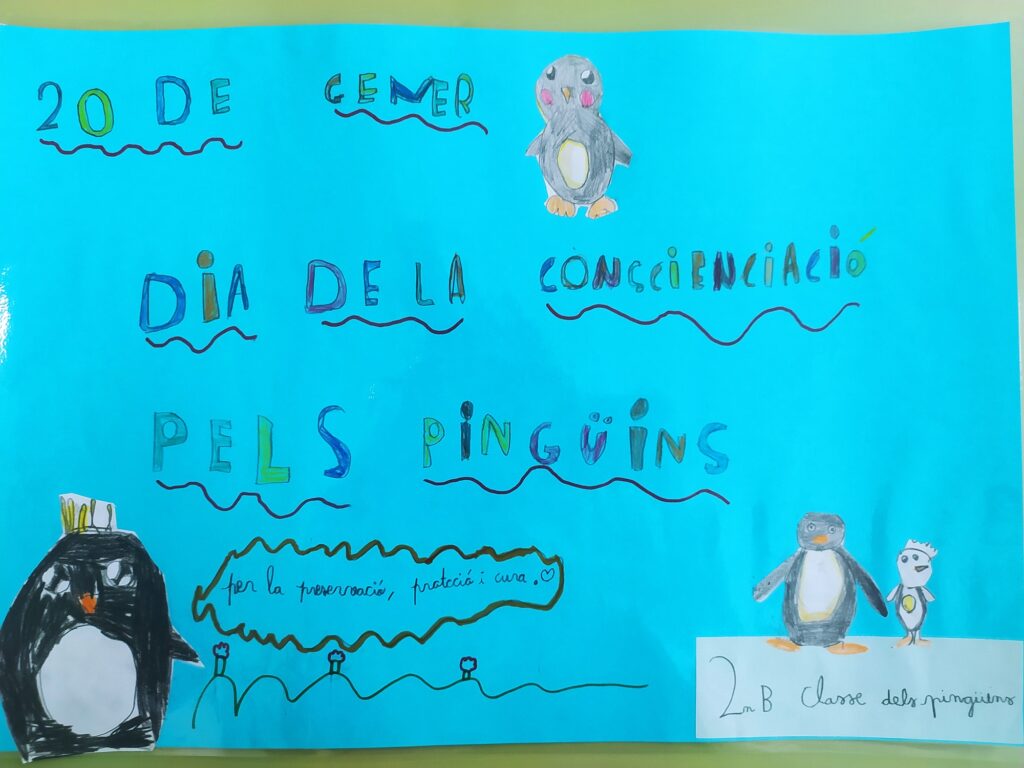 20 DE GENER
DiA DE LA CONSCiENCiACiÓ
PELS PiNGÜiNS
per la preservació, protcció i cura.
2n B Classe dels pingüins